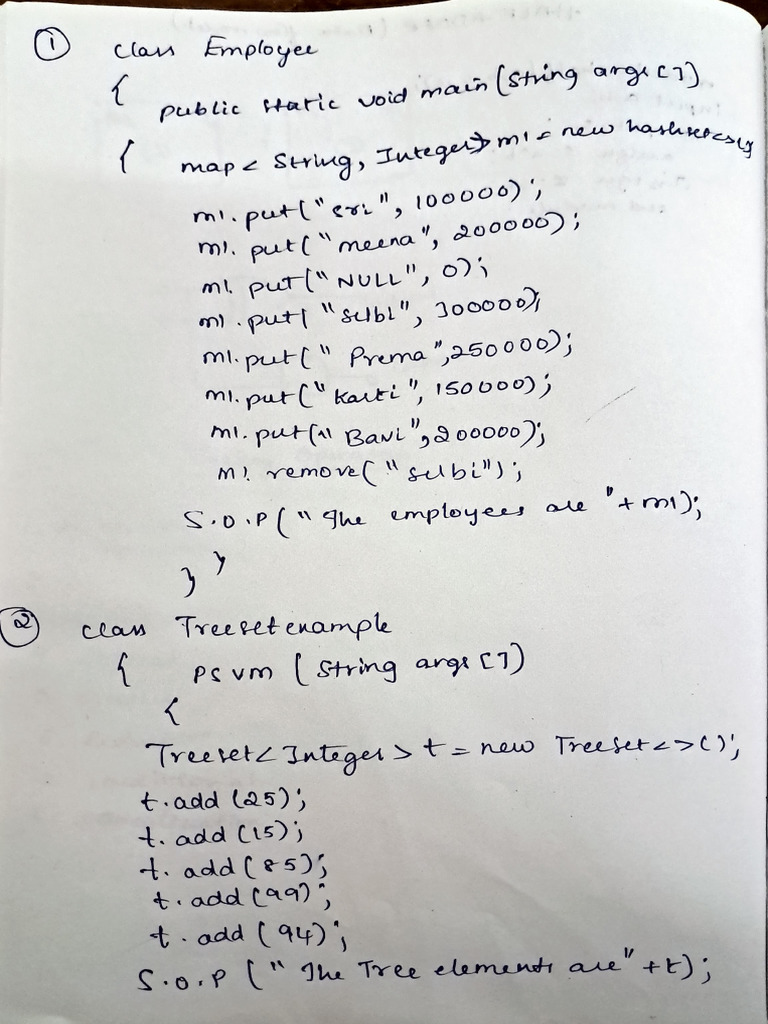 1 class Employee
{
public static void main (String args [])
{ map < String, Integer> m1 = new hashset<>();
m1.put("sri", 100000);
m1. put ("meena", 200000);
m1. put ("NULL", 0);
m1 .put( "selbi", 300000);
m1. put (" Prema",250000);
m1. put ("Karti", 150000);
m1. put (" Bavi",200000);
m1. remove ("selbi");
S.O.P (" The employees are "+ m1);
} }
2 class Treesetexample
{ psvm (String args [])
{
Treeset< Integer > t = new Treeset < > ();
t.add (25);
t. add (15);
t. add (85);
t. add (99);
t. add (94);
S.O.P (" The Tree elements are" + t);